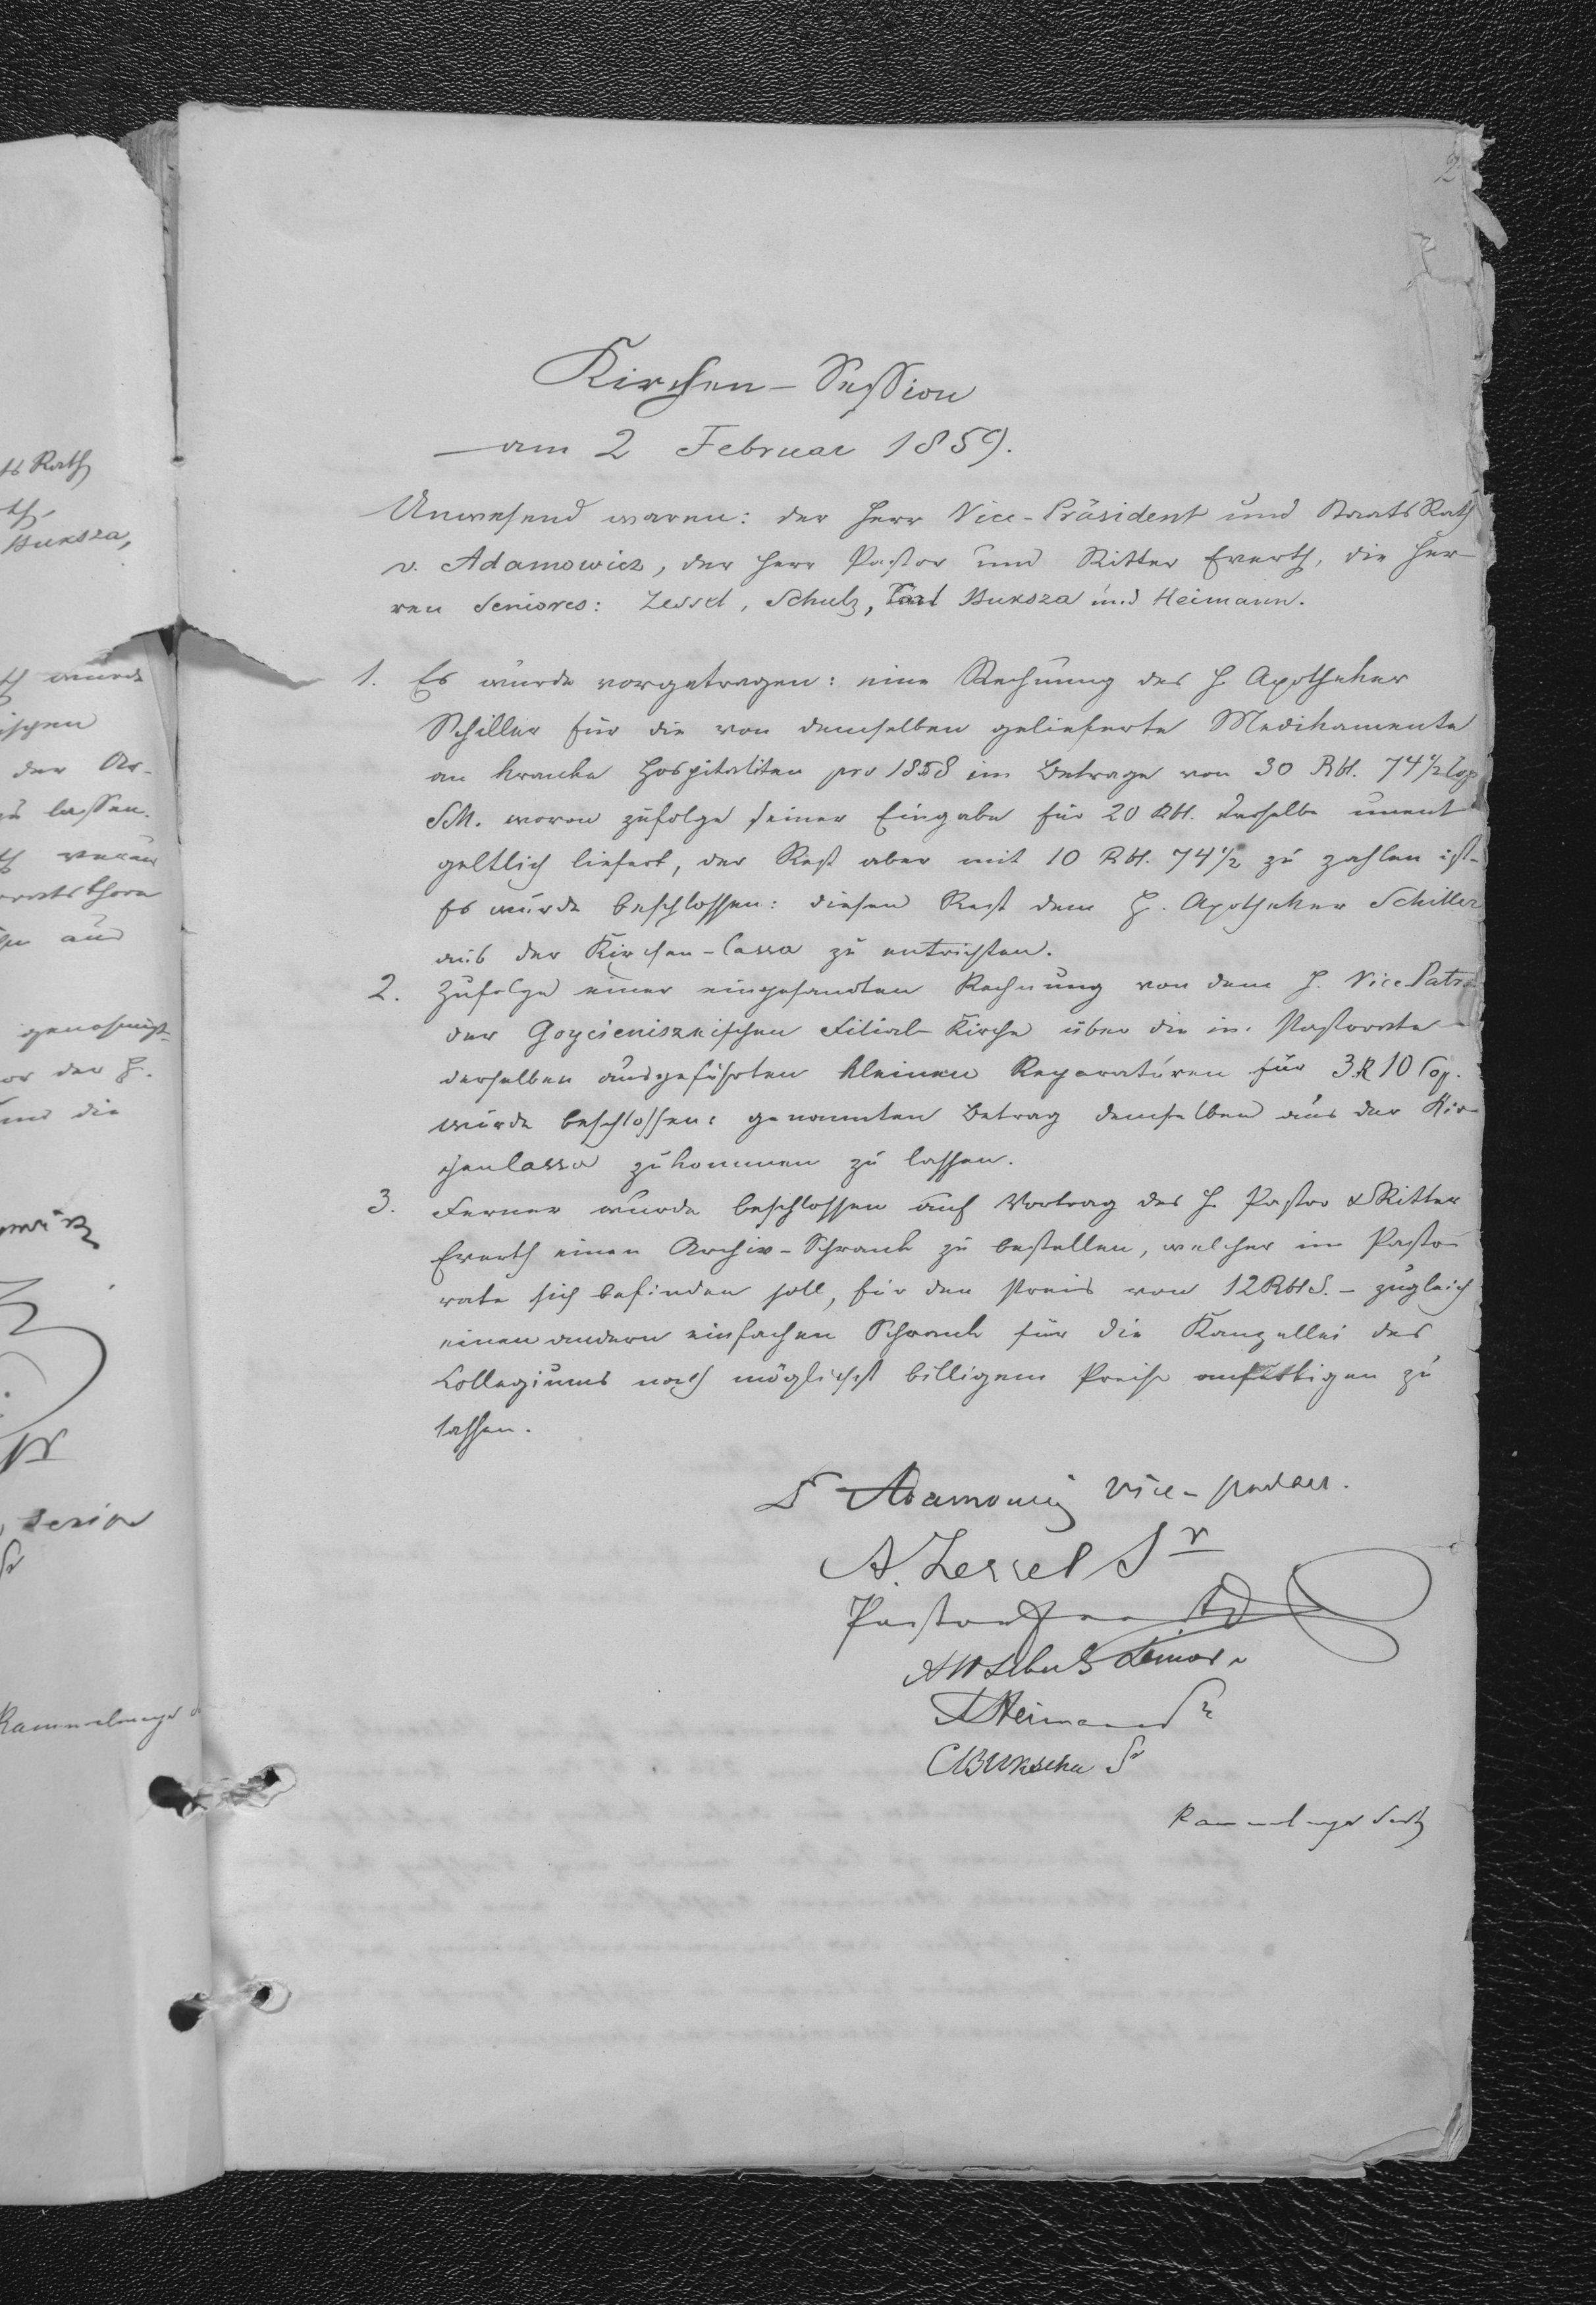 2
Kirchen-Session
am 2 Februar 1859.
Anwesend waren: der Herr Vice-Präsident und Staats Rath
v. Adamowicz, der Herr Pastor und Ritter Everth, die Her-
ren Seniores: Zessel, Schulz, Buksza und Heimann.
1. Es wurde vorgetragen: eine Rechnung des H Apotheker
Schiller für die von demselben gelieferte Medikamente
an kranke Hospitaliten pro 1858 im Betrage von 30 Rbl. 74 1/2 Cop
SM. wovon zufolge seiner Eingabe für 20 Rbl. derselbe unent
geltlich liefert, der Rest aber mit 10 Rbl. 74 1/2 zu zahlen ist-
Es wurde beschlossen: diesen Rest dem H. Apotheker Schiller
aus der Kirchen-Cassa zu entrichten.
2. Zufolge einer eingesandten Rechnung von dem H. Vice Patr
der Goycieniszkischen Filial-Kirche über die im Pastorate
derselben ausgeführten kleinen Reparaturen für 3 R 10 Cop.
wurde beschlossen: genannten Betrag demselben aus der Kir-
chencassa zukommen zu lassen.
3. Ferner wurde beschlossen auf Vortrag des H Pastor & Ritter
Everth einen Archiv-Schrank zu bestellen, welcher im Pasto-
rate sich befinden soll, für den Preis von 12 Rbl S. - zugleich
einen andern einfachen Schrank für die Kanzellei des
Collegiums nach möglichst billigem Preise anfertigen zu
lassen.
Adamowicz Vice-
A. Zessel Sr
Pastor Everth
AW Schulz Senior
A Heimann Sr
C Bukscha Sr
ts Rath
th,
Buksza,
th wurde
ischen
der Ar-
zu lassen.
aus
genehmigt
or der H.
und die
Senior
Sr